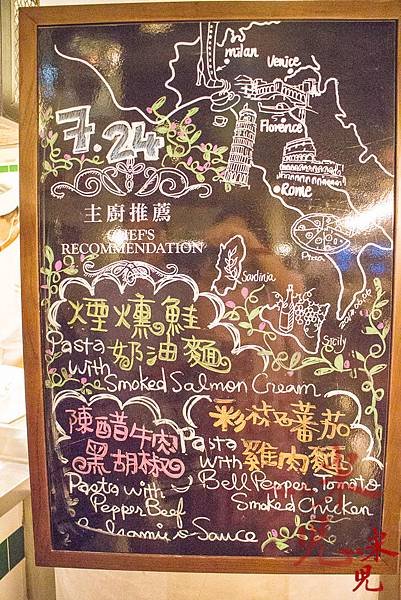 milan
Venice
Florence
Rome
Pizza
Sardinia
Sicily
7.24
主廚推薦
CHEF'S
RECOMMENDATION
煙燻鮭
奶油麵
Pasta
with
Smoked Salmon Cream
陳醋牛肉
黑胡椒
Pasta with
Pepper Beef
Balsamic Sauce
彩椒蕃茄
雞肉麵
Pasta
with
Bell Pepper, Tomato
Smoked Chicken